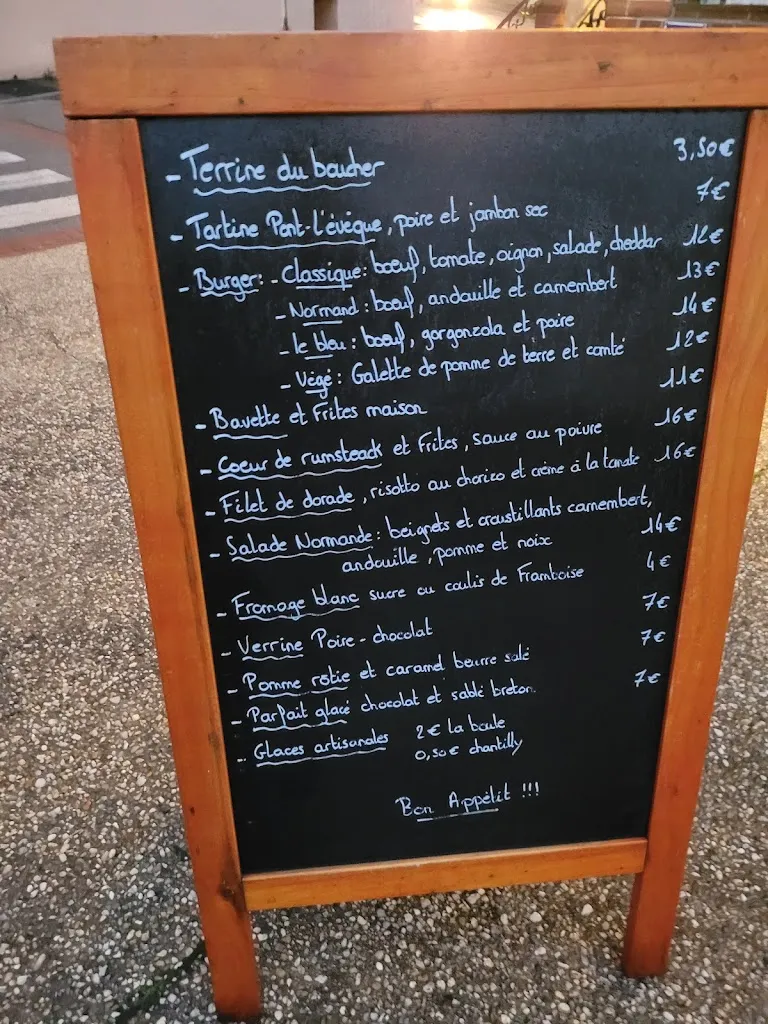 - Terrine du boucher 3,50€
- Tartine Pont-l'évêque, poire et jambon sec 7€
- Burger: - Classique: bœuf, tomate, oignon, salade, cheddar 12€
- Normand: bœuf, andouille et camembert 13€
- le bleu: bœuf, gorgonzola et poire 14€
- Végé: Galette de pomme de terre et comté 12€
- Bavette et Frites maison 11€
- Coeur de rumsteack et Frites, sauce au poivre 16€
- Filet de dorade, risotto au chorizo et crème à la tomate 16€
- Salade Normande: beignets et croustillants camembert,
andouille, pomme et noix 14€
- Fromage blanc sucre ou coulis de Framboise 4€
- Verrine Poire - chocolat 7€
- Pomme rôtie et caramel beurre salé 7€
- Parfait glacé chocolat et sablé breton 7€
- Glaces artisanales 2€ la boule
0,50€ chantilly
Bon Appétit !!!